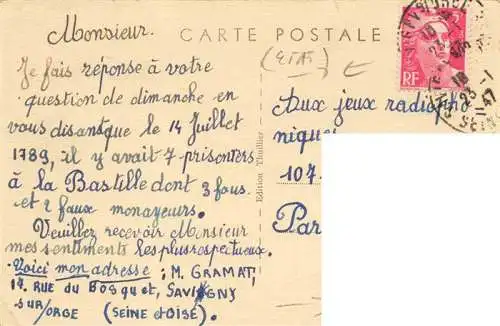 Monsieur.
CARTE POSTALE
(ETAT)
Je fais réponse à votre
question de dimanche en
vous disant que le 14 Juillet
1789, il y avait 7 prisonters
à la Bastille dont 3 fous
et 2 faux monayeurs.
Veuillez recevoir Monsieur
mes sentiments les plus respectueux.
Voici mon adresse : M. GRAMAT,
17. RUE DU BOSQUET, SAVIGNY
SUR/ORGE (SEINE et OISE)
Edition Thuillier
Aux jeux radioph
niques
107
Par
RF